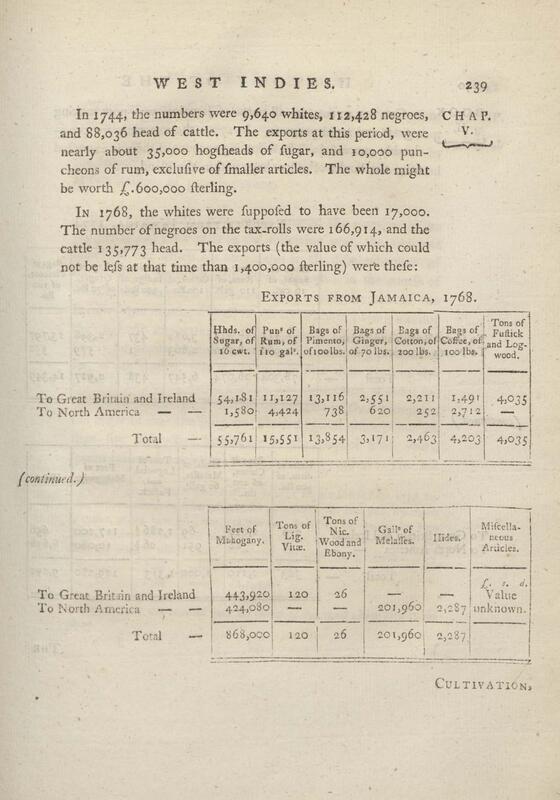 WEST INDIES. 239
In 1744, the numbers were 9,640 whites, 112,428 negroes, CHAP.
and 88,036 head of cattle. The exports at this period, were V.
nearly about 35,000 hogſheads of ſugar, and 10,000 pun-
cheons of rum, excluſive of ſmaller articles. The whole might
be worth £.600,000 ſterling.
In 1768, the whites were ſuppoſed to have been 17,000.
The number of negroes on the tax-rolls were 166,914, and the
cattle 135,773 head. The exports (the value of which could
not be leſs at that time than 1,400,000 ſterling) were theſe:
Exports from Jamaica, 1768.
Hhds. of Sugar, of 16 cwt. Punˢ of Rum, of 110 galˢ. Bags of Pimento, of 100 lbs. Bags of Ginger, of 70 lbs. Bags of Cotton, of 200 lbs. Bags of Coffee, of 100 lbs. Tons of Fuſtick and Log-wood.
To Great Britain and Ireland 54,181 11,127 13,116 2,551 2,211 1,491 4,035
To North America — — 1,580 4,424 738 620 252 2,712 —
Total — 55,761 15,551 13,854 3,171 2,463 4,203 4,035
(continued.)
Feet of Mahogany. Tons of Lig. Vitæ. Tons of Nic. Wood and Ebony. Gallˢ of Melaſſes. Hides. Miſcella-neous Articles.
£. s. d.
To Great Britain and Ireland 443,920 120 26 — — Value
To North America — — 424,080 — — 201,960 2,287 unknown.
Total — 868,000 120 26 201,960 2,287
Cultivation,